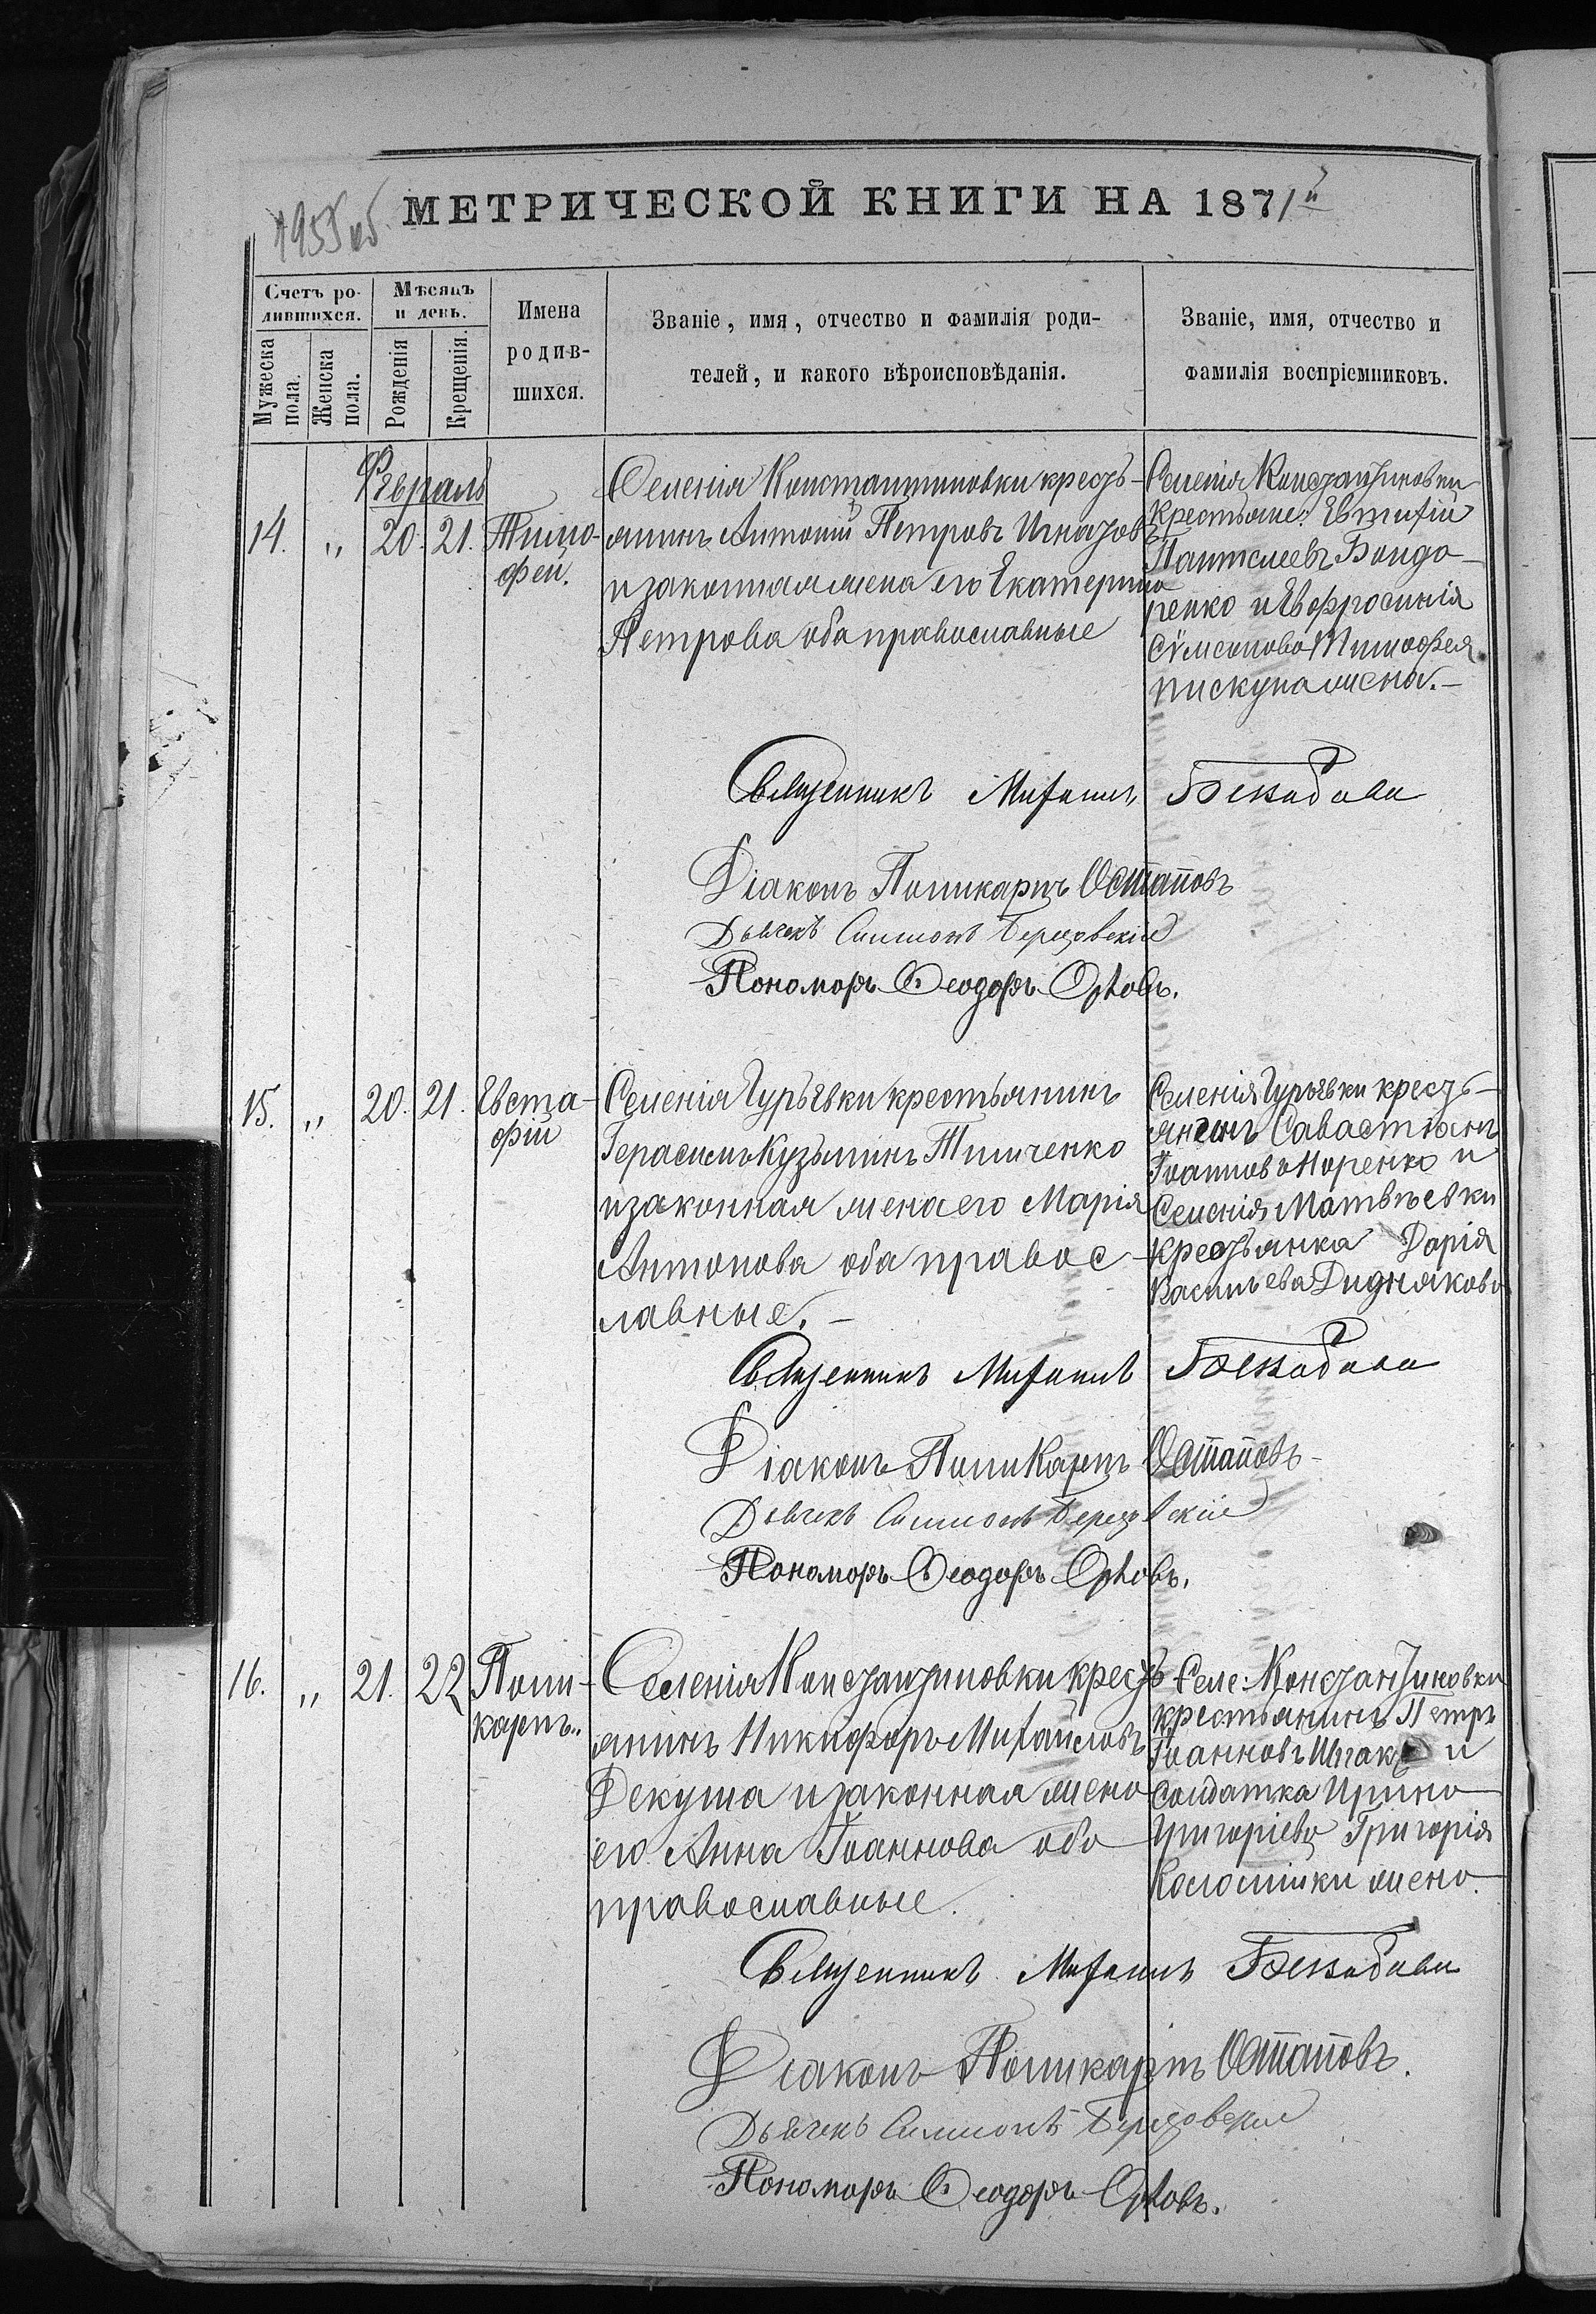 195 об.
МЕТРИЧЕСКОЙ КНИГИ НА 1871й
Счетъ ро-
дившихся.
Мужеска
пола.
Женска
пола.
Мѣсяцъ
и день.
Рожденія
Крещенія.
Имена
родив-
шихся.
Званіе, имя, отчество и фамилія роди-
телей, и какого вѣроисповѣданія.
Званіе, имя, отчество и
фамилія воспріемниковъ.
Февраль
14. „ 20. 21.
Тимо-
фей.
Селенія Константиновки кресть-
янинъ Антоній Петровъ Игнатовъ
и законная жена его Екатерина
Петрова оба православные
Селенія Константиновки
крестьяне: Евтихій
Пантелеевъ Бондо-
ренко и Евфросинія
Сѵмеонова Тимофея
пискуна жена.-
Священникъ Михаилъ
Діаконъ Поликарпъ Остаповъ
Дьячекъ Симеонъ
Пономоръ Ѳеодоръ Орловъ.
15. „ 20. 21.
Евста-
фій
Селенія Гурьевки крестьянинъ
Герасимъ Кузьминъ Тимченко
и законная жена его Марія
Антонова оба правос-
лавные. -
Селенія Гурьевки кресть-
янинъ Савастіанъ
Іоанновъ Норенко и
Селенія Матвѣевки
крестьянка Дарія
Касьнѣева Дидняково
Священникъ Михаилъ
Діаконъ Поликарпъ Остаповъ
Дьячекъ Симеонъ
Пономоръ Ѳеодоръ Орловъ.
16. „ 21. 22
Поли-
карпъ.
Селенія Константиновки кресть-
янинъ Никифоръ Михайловъ
Декуша и законная жено
его Анна Іоаннова обо
православные.
Селе: Константиновки
крестьянинъ Петръ
Іоанновъ и
солдатка Ирино
Григоріева Григорія
жено.
Священникъ Михаилъ
Діаконъ Поликарпъ Остаповъ.
Дьячекъ Симеонъ
Пономоръ Ѳеодоръ Орловъ.